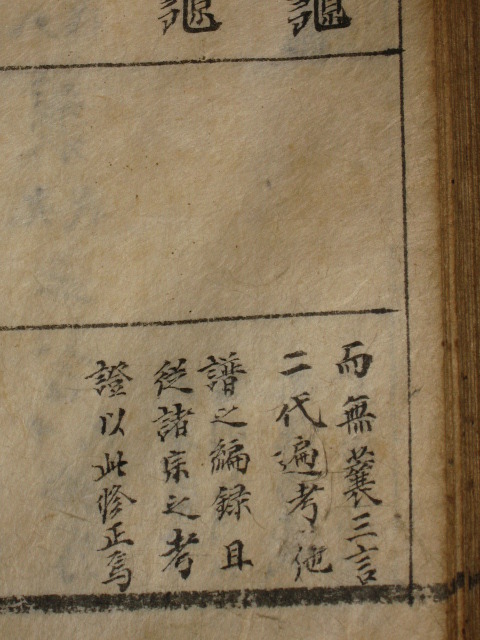 而無三言
二代遍考他
譜之編録且
從諸宗之考
證以此修正焉